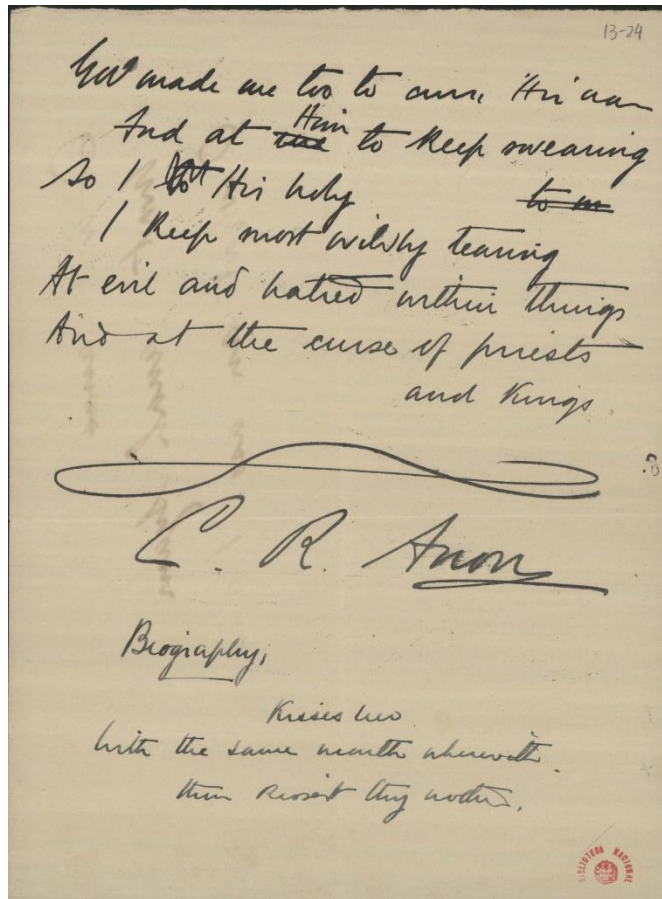 13-24
God made me too to curse His nam
And at me Him to keep swearing
So I His holy to m
I keep most wildly tearing
At evil and hatred within things
And at the curse of priests
and Kings.
C. R. Anon
Biography,
Kisses
With the same mouth wherewith
thou kissest thy mother.
BIBLIOTECA NACIONAL